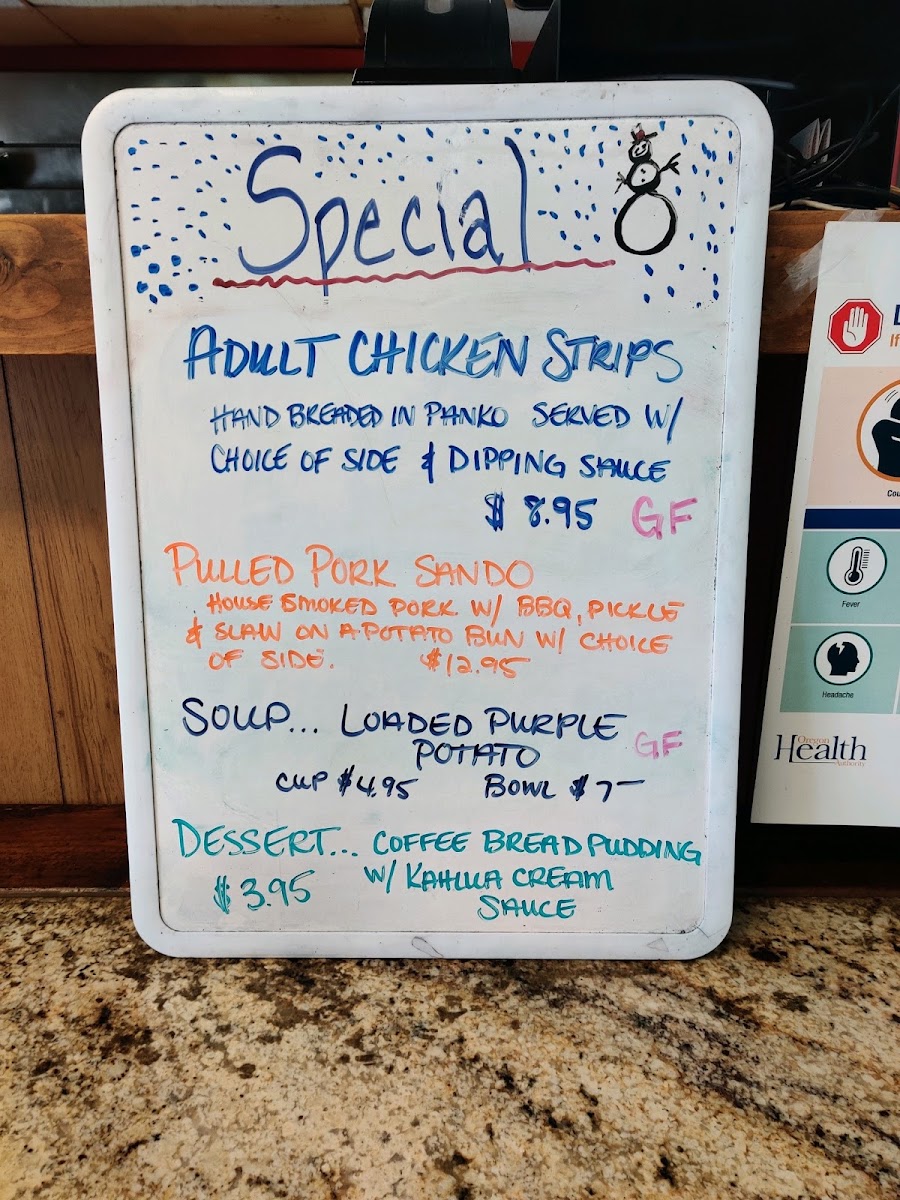 Special
ADULT CHICKEN STRIPS
HAND BREADED IN PANKO SERVED W/
CHOICE OF SIDE & DIPPING SAUCE
$ 8.95 GF
PULLED PORK SANDO
HOUSE SMOKED PORK W/ BBQ, PICKLE
& SLAW ON A POTATO BUN W/ CHOICE
OF SIDE. $12.95
SOUP... LOADED PURPLE
POTATO GF
CUP $4.95 BOWL $7—
DESSERT... COFFEE BREAD PUDDING
W/ KAHLUA CREAM
$3.95 SAUCE
If
Fever
Headache
Oregon
Health
Authority